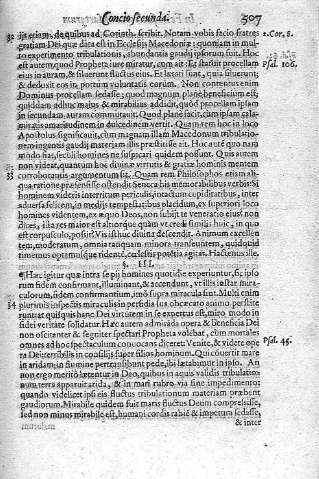 Concio secunda. 507
32 dis etiam, de quibus ad Corinth. scribit. Notam vobis facio fratres 2. Cor. 8.
gratiam Dei quæ data est in Ecclesijs Macedoniæ: quoniam in mul
to experimento tribulationis, abundantia gaudij ipsorum fuit. Hoc
est autem quod Propheta iure miratur, cum ait: Et statuit procellam Psal. 106.
eius in auram, & siluerunt fluctus eius. Et lætati sunt, quia siluerunt;
& deduxit eos in portum voluntatis eorum. Non contentus enim
Dominus procellam sedasse; quod magnum planè beneficium est,
quiddam adhuc maius & mirabilius addidit, quod procellam ipsam
in secundam auram commutauit. Quod planè facit, cum ipsam cala-
mitatis amaritudinem in dulcedinem vertit. Quam rem hoc in loco
Apostolus significauit, cum magnam illam Macedonum tribulatio-
nem ingentis gaudij materiam illis præstitisse ait. Hoc autē quo nam
modo fiat, seculi homines ne suspicari quidem possunt. Quis autem
non videat, quantum hoc diuinæ virtutis & gratiæ hominis mentem
33 corroborantis argumentum sit. Quam rem Philosophus etiam ali-
qua ratione præsensisse ostendit Seneca his memorabilibus verbis: Si
hominem videris interritum periculis, intactum cupiditatibus, inter
aduersa felicem, in medijs tempestatibus placidum, ex superiori loco
homines videntem, ex æquo Deos, non subijt te veneratio eius? non
dices, ista res maior est altiorque quàm vt credi similis huic, in quo
est corpusculo, possit? Vis isthuc diuina descendit. Animum excellen
tem, moderatum, omnia tanquam minora transeuntem, quidquid
timemus optamusque ridentē, cœlestis potētia agitat. Hactenus ille.
§. III.
¶ Hæc igitur quæ intra se pij homines quotidie experiuntur, sic ipso
rum fidem confirmant, illuminant, & accendunt, vt illis instar mira-
culorum, fidem confirmantium, imò supra miracula sint. Multi enim
34 plurimis inspectis miraculis in perfidia sua obcœcato animo perstite
runt: at quisquis hanc Dei virtutem in se expertus est, miro modo in
fidei veritate solidatur. Hæc autem admirãda opera & beneficia Dei
non oscitanter & segniter spectari Propheta volebat, cum mortales
omnes ad hoc spectaculum conuocans diceret: Venite, & videte ope Psal. 45.
ra Dei: terribilis in consilijs super filios hominum. Qui cōuertit mare
in aridam, in flumine pertransibunt pede, ibi lætabimur in ipso. An
non ergo meritò lætentur in Deo, quibus in aquis validis tribulatio-
num terra apparuit arida, & in mari rubro via sine impedimento:
quando videlicet ipsi eis fluctus tribulationum materiam præbent
gaudiorum. Mirabile quidem fuit maris fluctus Deum compescuisse,
sed non minus mirabile est, humani cordis rabiē & impetum sedasse,
& inter